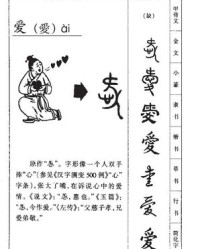 爱（愛）ài
（缺）
原作“㤅”。字形像一个人双手
捧“心”（参见《汉字演变500例》“心”
字条），张大了嘴，在诉说心中的爱
情。《说文》：“㤅，惠也。”《玉篇》：
“㤅，今作爱。”《左传》：“父慈子孝，兄
爱弟敬。”
甲骨文
金文
小篆
隶书
楷书
草书
行书
简化字
愛
爱